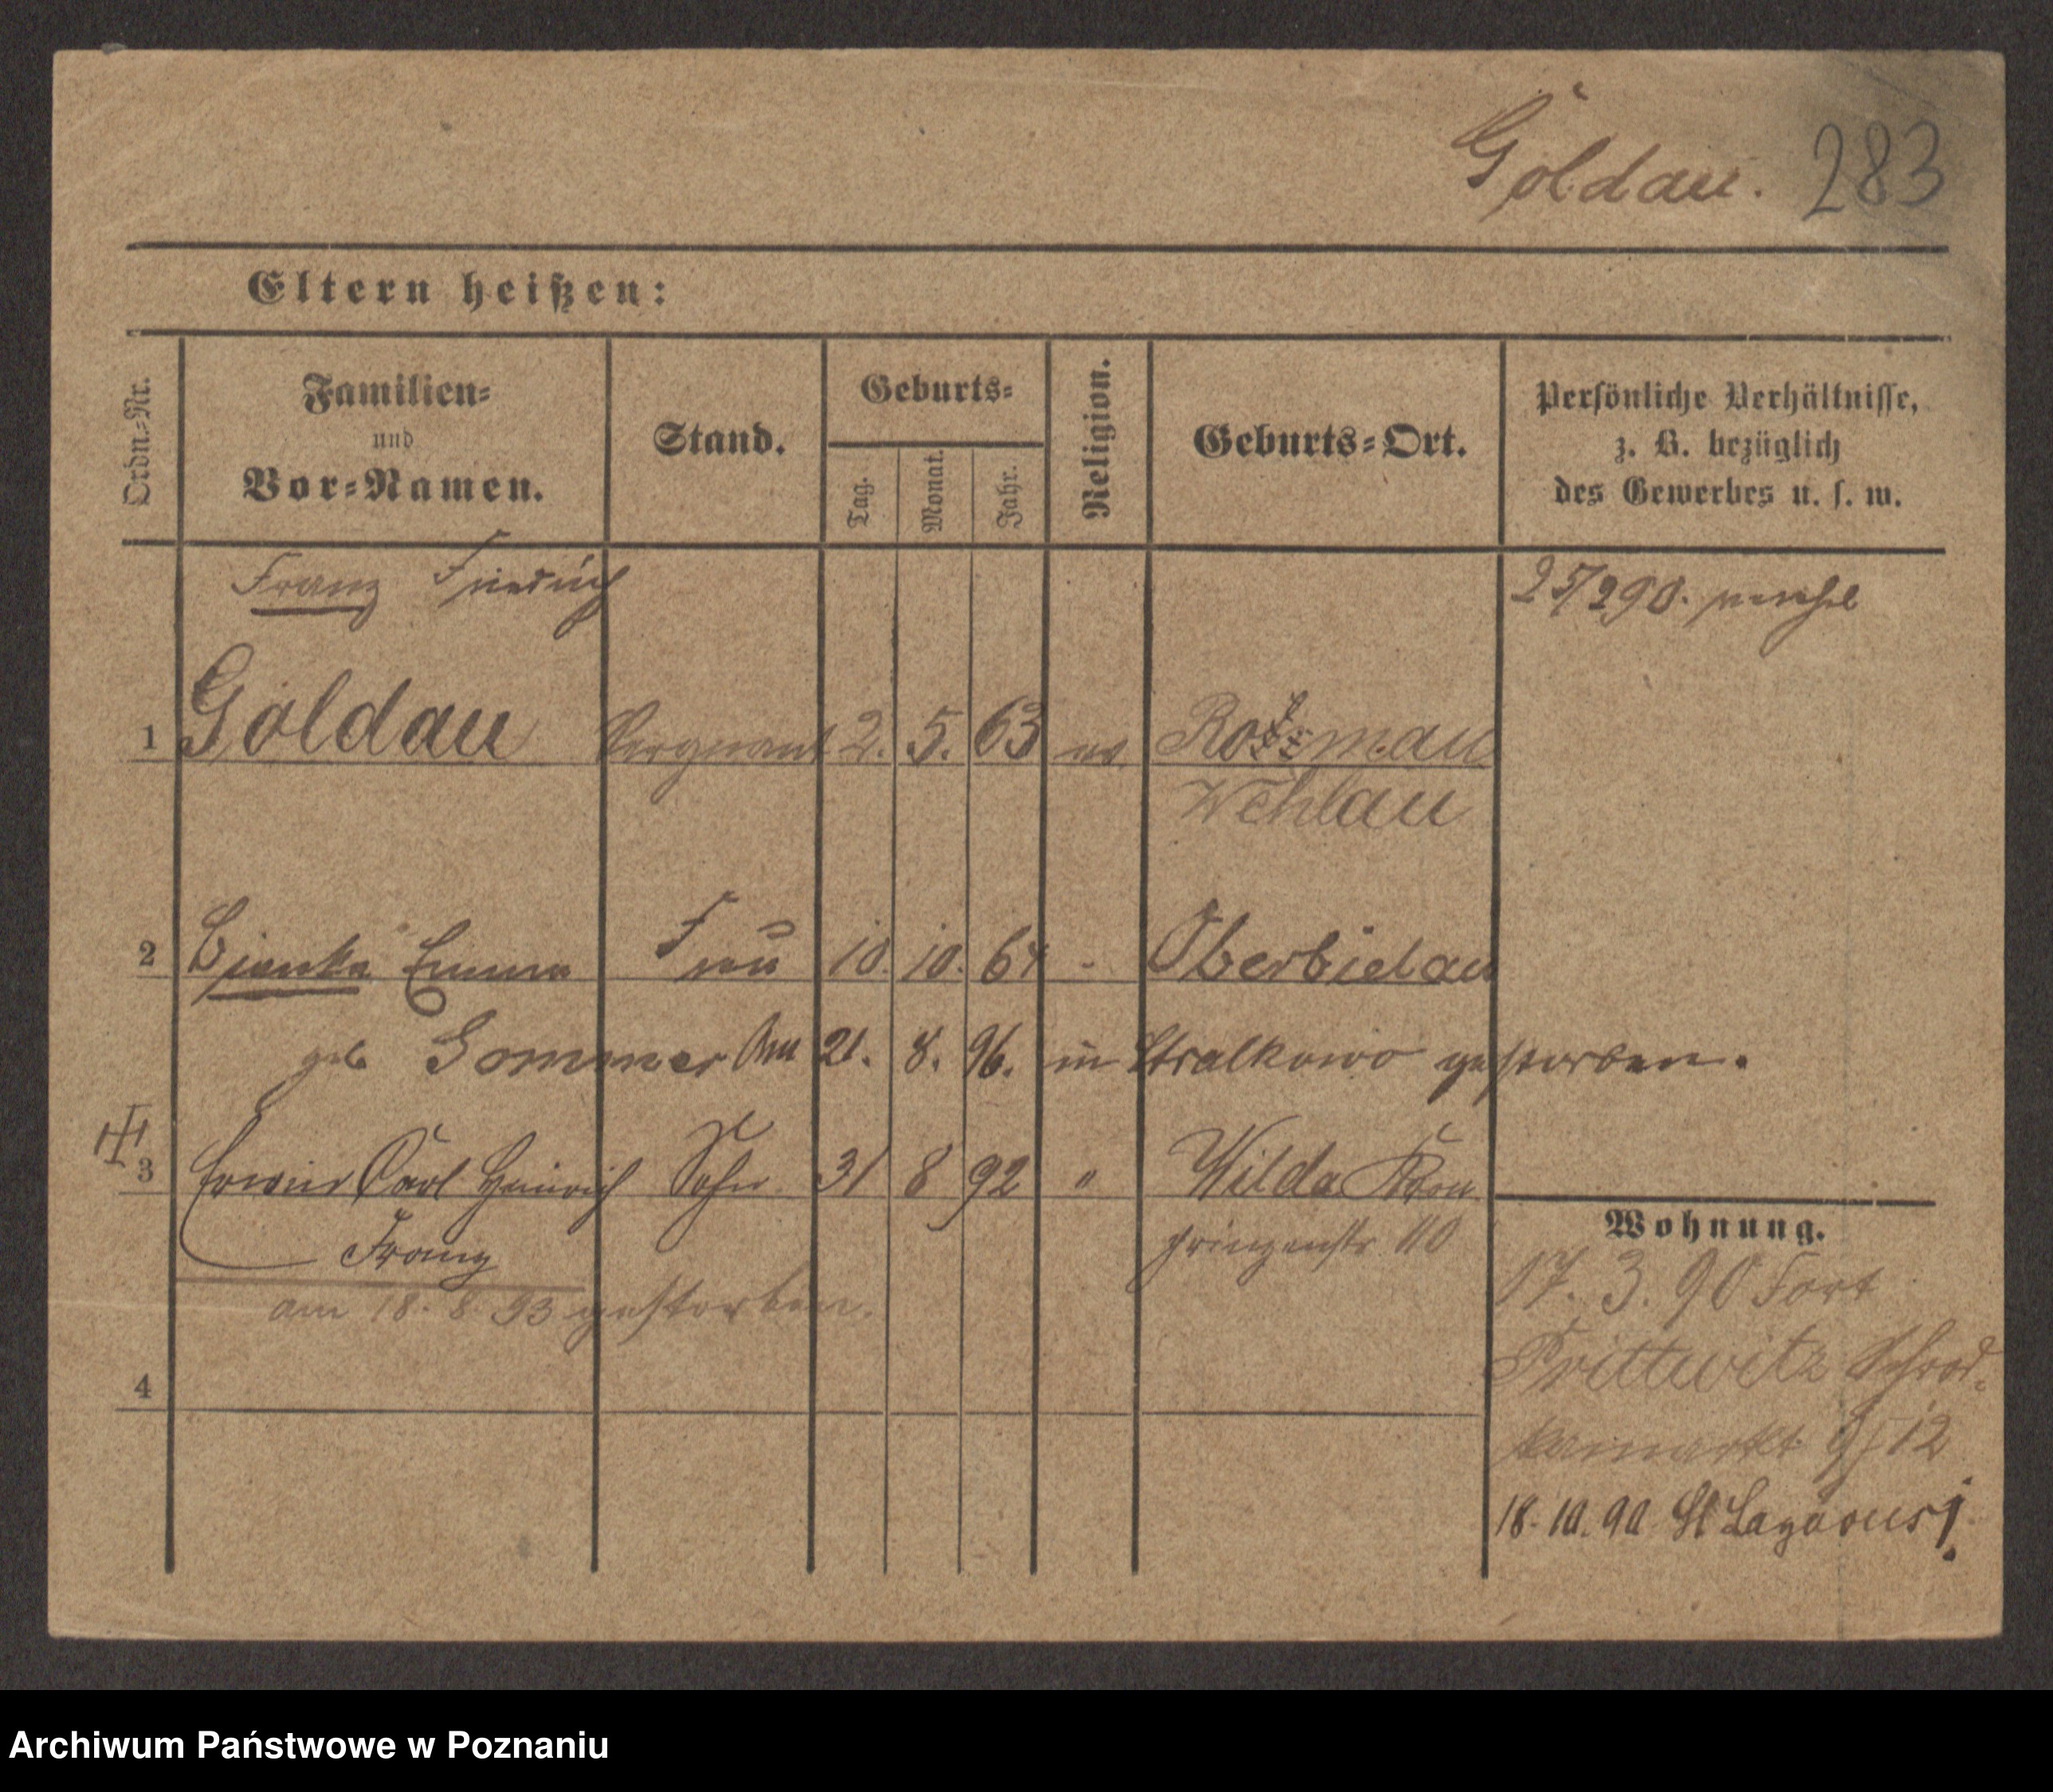 Goldau. 283
Eltern heißen:
Ordn.-Nr.
Familien-
und
Vor-Namen.
Stand.
Geburts-
Tag.
Monat.
Jahr.
Religion.
Geburts-Ort.
Persönliche Verhältnisse,
z. B. bezüglich
des Gewerbes u. s. w.
Franz Friedrich 25/290.
1 Goldau Sergeant 2. 5. 63 ev.
Wehlau
2 Emma Frau 10. 10. 64 Oberbielau
geb Sommer Am 21. 8. 96. in Stralkowo gestorben.
3 Erwin Carl Heinrich Sohn 31 8 92 " Wilda Kron
Franz prinzenstr. 110
am 18. 8. 93 gestorben.
Wohnung.
17. 3. 90 Fort
Prittwitz Schrod-
kamarkt 12
18. 10. 90 St Lazarus
4
Archiwum Państwowe w Poznaniu